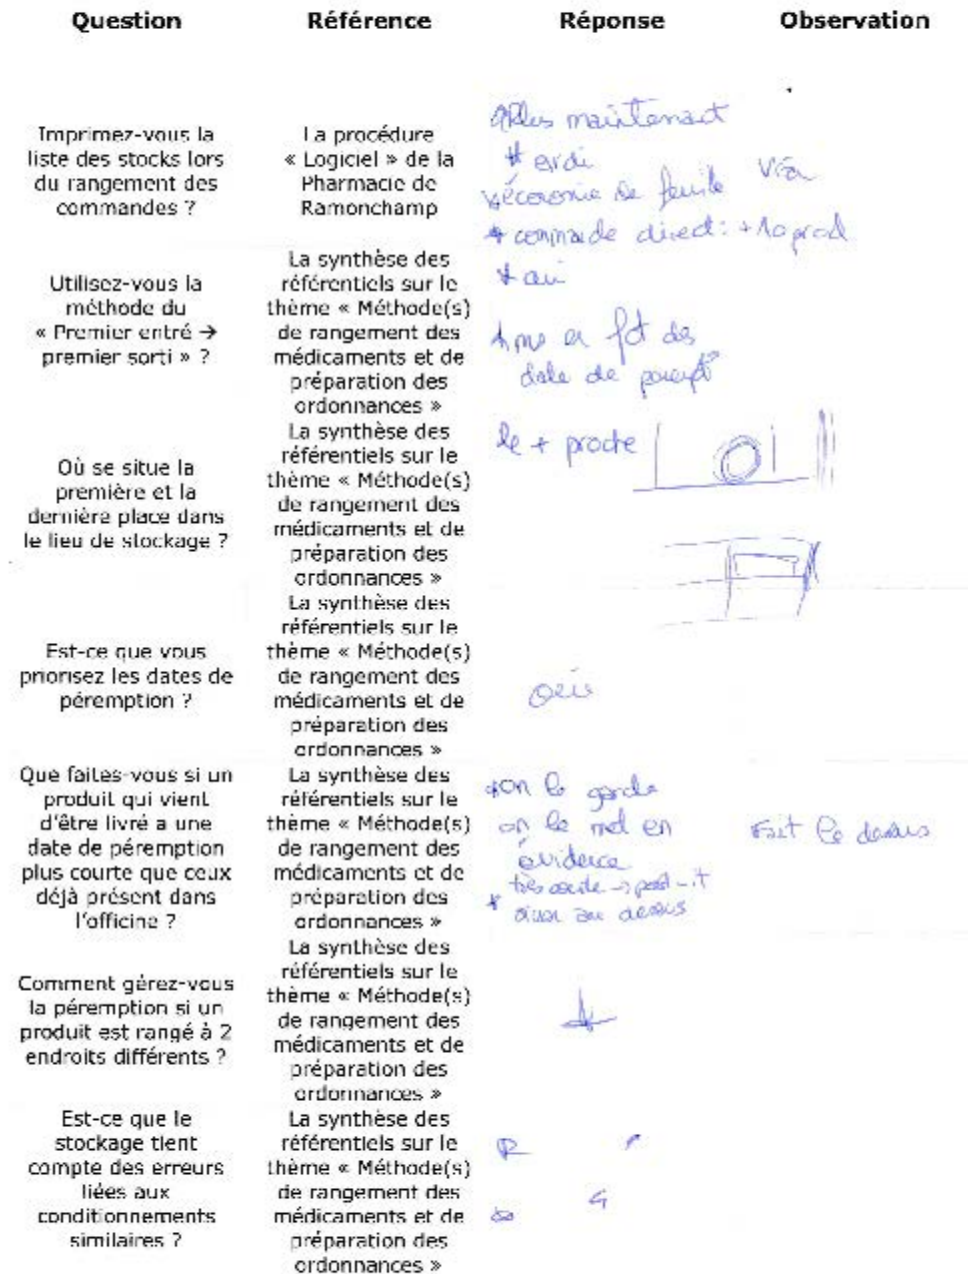 Question Référence Réponse Observation
Imprimez-vous la
liste des stocks lors
du rangement des
commandes ?
La procédure
« Logiciel » de la
Pharmacie de
Ramonchamp
Plus maintenant
économie de feuille
commande direct : +
Utilisez-vous la
méthode du
« Premier entré →
premier sorti » ?
La synthèse des
référentiels sur le
thème « Méthode(s)
de rangement des
médicaments et de
préparation des
ordonnances »
date de
Où se situe la
première et la
dernière place dans
le lieu de stockage ?
La synthèse des
référentiels sur le
thème « Méthode(s)
de rangement des
médicaments et de
préparation des
ordonnances »
le + proche
Est-ce que vous
priorisez les dates de
péremption ?
La synthèse des
référentiels sur le
thème « Méthode(s)
de rangement des
médicaments et de
préparation des
ordonnances »
oui
Que faites-vous si un
produit qui vient
d'être livré a une
date de péremption
plus courte que ceux
déjà présent dans
l'officine ?
La synthèse des
référentiels sur le
thème « Méthode(s)
de rangement des
médicaments et de
préparation des
ordonnances »
*on le garde
on le met en
évidence
très courte → post-it
* sinon au dessus
Comment gérez-vous
la péremption si un
produit est rangé à 2
endroits différents ?
La synthèse des
référentiels sur le
thème « Méthode(s)
de rangement des
médicaments et de
préparation des
ordonnances »
Est-ce que le
stockage tient
compte des erreurs
liées aux
conditionnements
similaires ?
La synthèse des
référentiels sur le
thème « Méthode(s)
de rangement des
médicaments et de
préparation des
ordonnances »